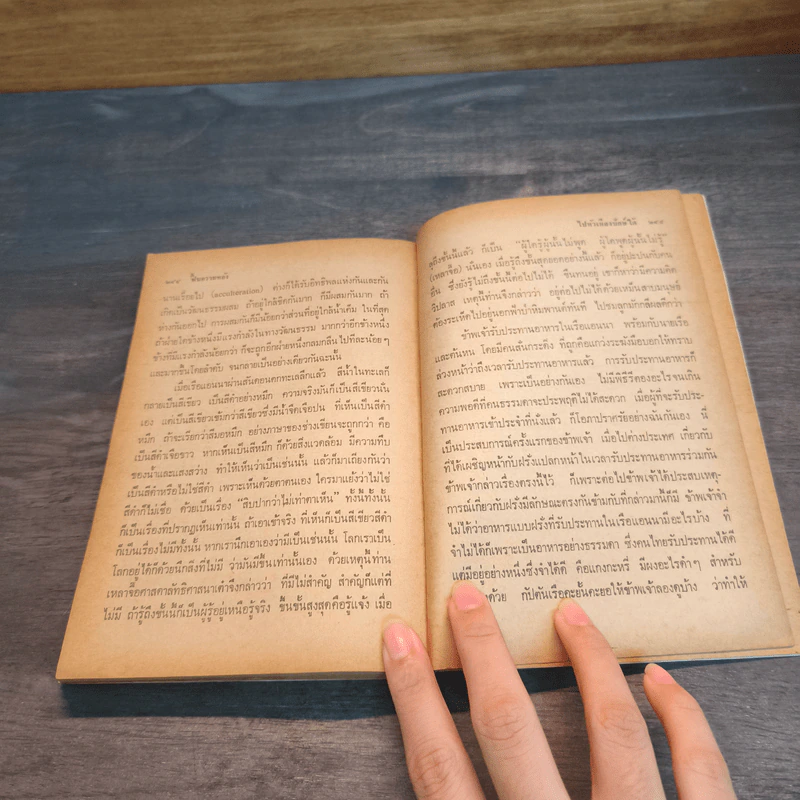 ๒๙๔ ฟื้นความหลัง
นานเรื่อยไป (acculturation) ต่างก็ได้รับอิทธิพลแห่งกันและกัน
เกิดเป็นวัฒนธรรมผสม ถ้าอยู่ใกล้ชิดกันมาก ก็มีผสมกันมาก ถ้า
ห่างกันออกไป การผสมกันก็มีน้อยกว่าส่วนที่อยู่ใกล้น้ำเค็ม ในที่สุด
ถ้าฝ่ายใดข้างหนึ่งมีแรงกำลังในทางวัฒนธรรม มากกว่าอีกข้างหนึ่ง
ข้างที่มีแรงกำลังน้อยกว่า ก็จะถูกอีกฝ่ายหนึ่งกลมกลืนไปทีละน้อยๆ
และมากขึ้นโดยลำดับ จนกลายเป็นอย่างเดียวกันฉะนั้น
เมื่อเรือแอนนาผ่านสันดอนตกทะเลลึกแล้ว สีน้ำในทะเลก็
กลายเป็นสีเขียว เป็นสีดำอย่างหมึก ความจริงมันก็เป็นสีเขียวนั่น
เอง แต่เป็นสีเขียวเข้มกว่าสีเขียวซึ่งมีน้ำจืดเจือปน ที่เห็นเป็นสีดำ
หมึก ถ้าจะเรียกว่าสีมอหมึก อย่างภาษาของช่างเขียนจะถูกกว่า คือ
เป็นสีดำเจือขาว หากเห็นเป็นสีหมึก ก็ด้วยสิ่งแวดล้อม มีความทึบ
ของน้ำและแสงสว่าง ทำให้เห็นว่าเป็นเช่นนั้น แล้วก็มาเถียงกันว่า
เป็นสีดำหรือไม่ใช่สีดำ เพราะเห็นด้วยตาตนเอง ใครมาแย้งว่าไม่ใช่
สีดำก็ไม่เชื่อ ด้วยเป็นเรื่อง "สิบปากว่าไม่เท่าตาเห็น" ทั้งนี้ทั้งนั้น
ก็เป็นเรื่องที่ปรากฏเห็นเท่านั้น ถ้าเอาเข้าจริง ที่เห็นก็เป็นสีเขียวสีดำ
ก็เป็นเรื่องไม่มีทั้งนั้น หากเรานึกเอาเองว่ามีเป็นเช่นนั้น โลกเราเป็น
โลกอยู่ได้ก็ด้วยนึกสิ่งที่ไม่มี ว่ามันมีขึ้นเท่านั้นเอง ด้วยเหตุนี้ท่าน
เหลาจื๊อศาสดาลัทธิศาสนาเต๋าจึงกล่าวว่า ที่มีไม่สำคัญ สำคัญก็แต่ที่
ไม่มี ถ้ารู้ถึงขั้นนี้ก็เป็นผู้รู้อยู่เหนือรู้จริง ขึ้นขั้นสูงสุดคือรู้แจ้ง เมื่อ
๒๙๕
ดูถึงขั้นนี้แล้ว ก็เป็น "ผู้ใดรู้ผู้นั้นไม่พูด ผู้ใดพูดผู้นั้นไม่รู้"
(เหลาจื๊อ) นั่นเอง เมื่อรู้ถึงขั้นสุดยอดอย่างนี้แล้ว ก็อยู่ปะปนกับคน
อื่น ซึ่งยังรู้ไม่ถึงขั้นนี้ต่อไปไม่ได้ ขืนทนอยู่ เขาก็หาว่ามีความคิด
วิปลาส เหตุนี้ท่านจึงกล่าวว่า อยู่ต่อไปไม่ได้ด้วยเหม็นสาบมนุษย์
ต้องระเห็ดไปอยู่นอกฟ้าป่าหิมพานต์ทันที ไปชมลูกมักกะลีผลดีกว่า
ข้าพเจ้ารับประทานอาหารในเรือแอนนา พร้อมกับนายเรือ
และต้นหน โดยมีคนสั่นกระดิ่ง ที่ถูกคือแกว่งระฆังมือบอกให้ทราบ
ล่วงหน้าว่าถึงเวลารับประทานอาหารแล้ว การรับประทานอาหารก็
สะดวกสบาย เพราะเป็นอย่างกันเอง ไม่มีพิธีรีตองอะไรจนเกิน
ความพอดีที่คนธรรมดาจะประพฤติไม่ได้สะดวก เมื่อผู้ที่จะรับประ-
ทานอาหารเข้าประจำที่นั่งแล้ว ก็โอภาปราศรัยอย่างฉันกันเอง นี่
เป็นประสบการณ์ครั้งแรกของข้าพเจ้า เมื่อไปต่างประเทศ เกี่ยวกับ
ที่ได้เผชิญหน้ากับฝรั่งแปลกหน้าในเวลารับประทานอาหารร่วมกัน
ข้าพเจ้ากล่าวเรื่องตรงนี้ไว้ ก็เพราะต่อไปข้าพเจ้าได้ประสบเหตุ-
การณ์เกี่ยวกับฝรั่งมีลักษณะตรงกันข้ามกับที่กล่าวมานี้ก็มี ข้าพเจ้าจำ
ไม่ได้ว่าอาหารแบบฝรั่งที่รับประทานในเรือแอนนามีอะไรบ้าง ที่
จำไม่ได้ก็เพราะเป็นอาหารอย่างธรรมดา ซึ่งคนไทยรับประทานได้ดี
แต่มีอยู่อย่างหนึ่งซึ่งจำได้ดี คือแกงกะหรี่ มีผงอะไรดำๆ สำหรับ
ด้วย กัปตันเรือคะยั้นคะยอให้ข้าพเจ้าลองดูบ้าง ว่าทำให้